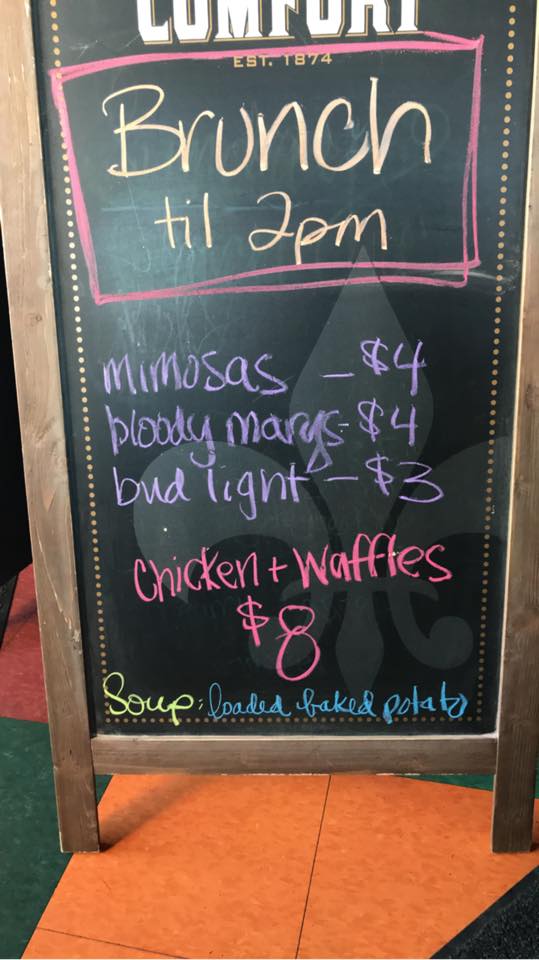 COMFORT
EST. 1874
Brunch
til 2pm
mimosas - $4
bloody marys - $4
bud light - $3
Chicken + Waffles
$8
Soup: loaded baked potato